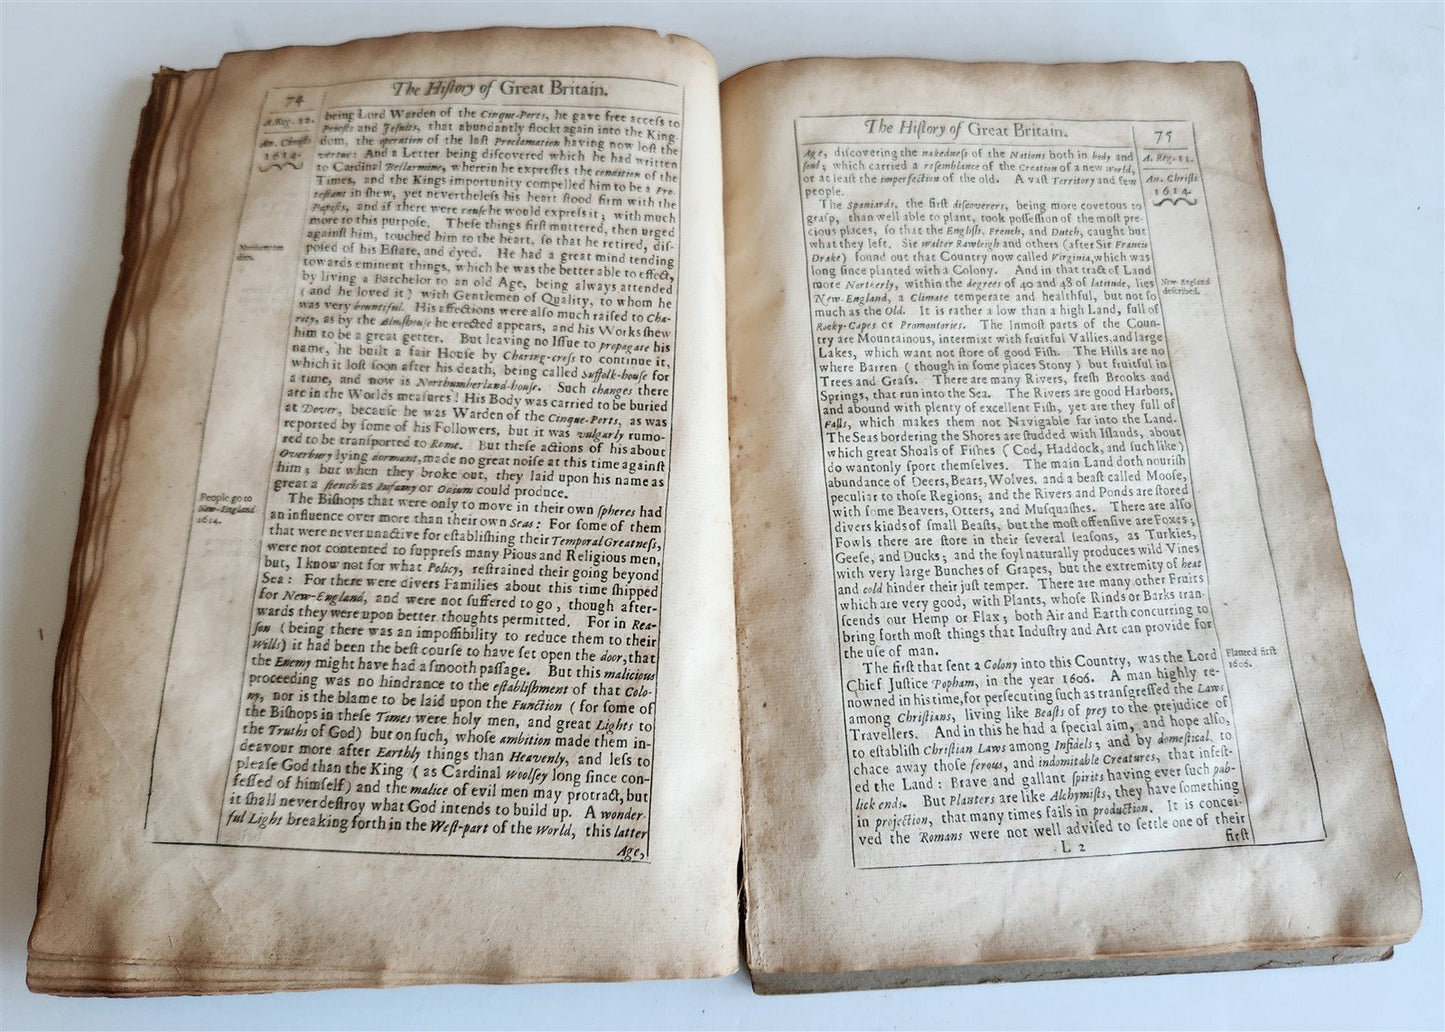 The Hiſtory of Great Britain.
74
A. Reg. 22.
An. Chriſti
1614.
being Lord Warden of the Cinque-Ports, he gave free acceſs to
Prieſts and Jeſuits, that abundantly flockt again into the King-
dom, the operation of the laſt Proclamation having now loſt the
vertue: And a Letter being diſcovered which he had written
to Cardinal Bellarmine, wherein he expreſſes the condition of the
Times, and the Kings importunity compelled him to be a Pro-
teſtant in ſhew, yet nevertheleſs his heart ſtood firm with the
Papiſts, and if there were cauſe he would expreſs it; with much
more to this purpoſe. Theſe things firſt muttered, then urged
againſt him, touched him to the heart, ſo that he retired, diſ-
poſed of his Eſtate, and dyed. He had a great mind tending
towards eminent things, which he was the better able to effect,
by living a Batchelor to an old Age, being always attended
( and he loved it ) with Gentlemen of Quality, to whom he
was very bountiful. His affections were alſo much raiſed to Cha-
rity, as by the Almſhouſe he erected appears, and his Works ſhew
him to be a great getter. But leaving no Iſſue to propagate his
name, he built a fair Houſe by Charing-croſs to continue it,
which it loſt ſoon after his death, being called Suffolk-houſe for
a time, and now is Northumberland-houſe. Such changes there
are in the Worlds meaſures! His Body was carried to be buried
at Dover, becauſe he was Warden of the Cinque-Ports, as was
reported by ſome of his Followers, but it was vulgarly rumo-
red to be tranſported to Rome. But theſe actions of his about
Overbury lying dormant, made no great noiſe at this time againſt
him; but when they broke out, they laid upon his name as
great a ſtench as Infamy or Odium could produce.
The Biſhops that were only to move in their own ſpheres had
an influence over more than their own Seas: For ſome of them
that were never unactive for eſtabliſhing their Temporal Greatneſs,
were not contented to ſuppreſs many Pious and Religious men,
but, I know not for what Policy, reſtrained their going beyond
Sea: For there were divers Families about this time ſhipped
for New-England, and were not ſuffered to go, though after-
wards they were upon better thoughts permitted. For in Rea-
ſon ( being there was an impoſſibility to reduce them to their
Wills) it had been the beſt courſe to have ſet open the door, that
the Enemy might have had a ſmooth paſſage. But this malicious
proceeding was no hindrance to the eſtabliſhment of that Colo-
ny, nor is the blame to be laid upon the Function ( for ſome of
the Biſhops in theſe Times were holy men, and great Lights to
the Truths of God) but on ſuch, whoſe ambition made them in-
deavour more after Earthly things than Heavenly, and leſs to
pleaſe God than the King ( as Cardinal Woolſey long ſince con-
feſſed of himſelf) and the malice of evil men may protract, but
it ſhall never deſtroy what God intends to build up. A wonder-
ful Light breaking forth in the Weſt-part of the World, this latter
Age,
Northampton
dies.
People go to
New-England
1614.
The Hiſtory of Great Britain.
75
A. Reg. 12.
An. Chriſti
1614.
Age, diſcovering the nakedneſs of the Nations both in body and
ſoul; which carried a reſemblance of the Creation of a new World,
or at leaſt the imperfection of the old. A vaſt Territory and few
people.
The Spaniards, the firſt diſcoverers, being more covetous to
graſp, than well able to plant, took poſſeſſion of the moſt pre-
cious places, ſo that the Engliſh, French, and Dutch, caught but
what they left. Sir Walter Rawleigh and others (after Sir Francis
Drake) found out that Country now called Virginia, which was
long ſince planted with a Colony. And in that tract of Land
more Northerly, within the degrees of 40 and 48 of latitude, lies
New-England, a Climate temperate and healthful, but not ſo
much as the Old. It is rather a low than a high Land, full of
Rocky-Capes or Promontories. The Inmoſt parts of the Coun-
try are Mountainous, intermixt with fruitful Vallies, and large
Lakes, which want not ſtore of good Fiſh. The Hills are no
where Barren ( though in ſome places Stony ) but fruitful in
Trees and Graſs. There are many Rivers, freſh Brooks and
Springs, that run into the Sea. The Rivers are good Harbors,
and abound with plenty of excellent Fiſh, yet are they full of
Falls, which makes them not Navigable far into the Land.
The Seas bordering the Shores are ſtudded with Iſlands, about
which great Shoals of Fiſhes ( Cod, Haddock, and ſuch like )
do wantonly ſport themſelves. The main Land doth nouriſh
abundance of Deers, Bears, Wolves, and a beaſt called Mooſe,
peculiar to thoſe Regions; and the Rivers and Ponds are ſtored
with ſome Beavers, Otters, and Muſquaſhes. There are alſo
divers kinds of ſmall Beaſts, but the moſt offenſive are Foxes;
Fowls there are ſtore in their ſeveral ſeaſons, as Turkies,
Geeſe, and Ducks; and the ſoyl naturally produces wild Vines
with very large Bunches of Grapes, but the extremity of heat
and cold hinder their juſt temper. There are many other Fruits
which are very good, with Plants, whoſe Rinds or Barks tran-
ſcends our Hemp or Flax; both Air and Earth concurring to
bring forth moſt things that Induſtry and Art can provide for
the uſe of man.
The firſt that ſent a Colony into this Country, was the Lord
Chief Juſtice Popham, in the year 1606. A man highly re-
nowned in his time, for perſecuting ſuch as tranſgreſſed the Laws
among Chriſtians, living like Beaſts of prey to the prejudice of
Travellers. And in this he had a ſpecial aim, and hope alſo,
to eſtabliſh Chriſtian Laws among Infidels; and by domeſtical, to
chace away thoſe ferous, and indomitable Creatures, that infeſt-
ed the Land: Brave and gallant ſpirits having ever ſuch pub-
lick ends. But Planters are like Alchymiſts, they have ſomething
in projection, that many times fails in production. It is concei-
ved the Romans were not well adviſed to ſettle one of their
L 2
firſt
New-England
deſcribed.
Planted firſt
1606.